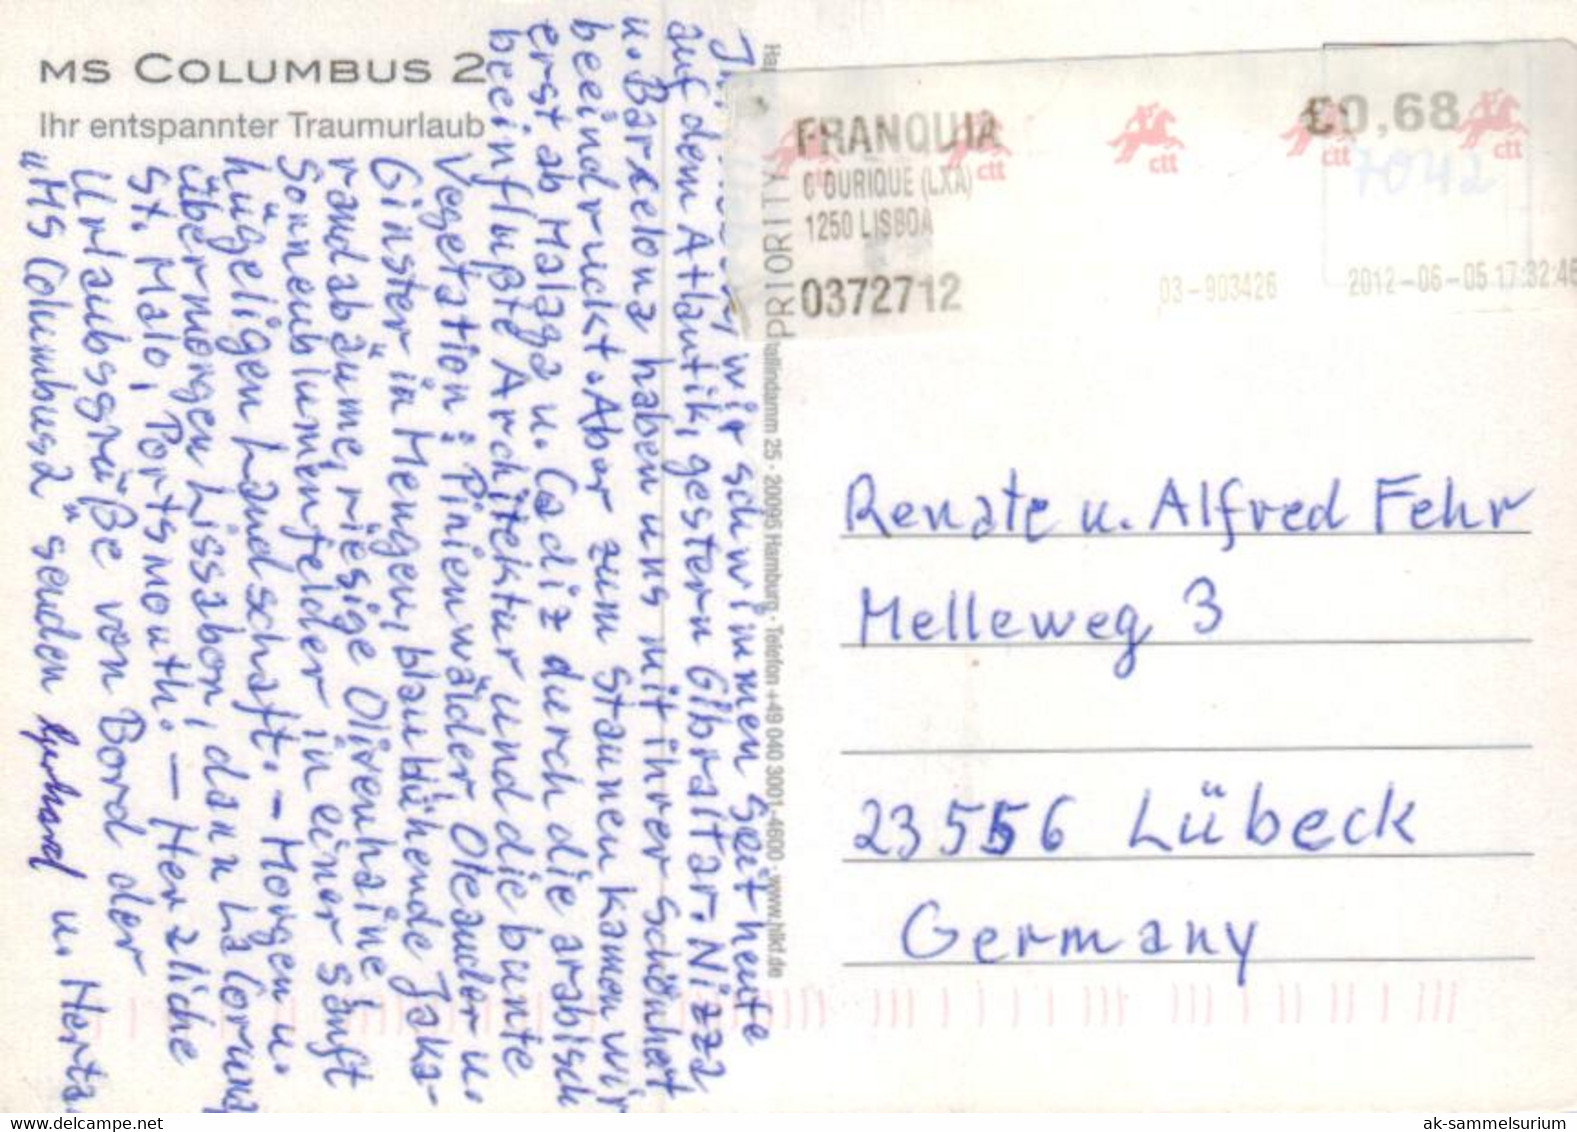 MS COLUMBUS 2
Ihr entspannter Traumurlaub
wir schwimmen seit heute
auf dem Atlantik, gestern Gibraltar. Nizza
u. Barcelona haben uns mit ihrer Schönheit
beeindruckt. Aber zum Staunen kamen wir
erst ab Malaga u. Cadiz durch die arabisch
beeinflußte Architektur und die bunte
Vegetation: Pinienwälder, Oleander u.
Ginster in Mengen, blaublühende Jaka-
randabäume, riesige Olivenhaine!
Sonnenblumenfelder in einer sanft
hügeligen Landschaft. – Morgen u.
übermorgen Lissabon, dann La Coruna,
St. Malo, Portsmouth. – Herzliche
Urlaubsgrüße von Bord der
"MS Columbus 2" senden Gerhard u. Herta.
PRIORITY
allindamm 25 · 20095 Hamburg · Telefon +49 040 3001-4600 · www.hlkf.de
FRANQUIA
€0,68
C OURIQUE (LXA)
1250 LISBOA
7042
0372712
03-903426
2012-06-05 17:32:46
ctt ctt ctt ctt
Renate u. Alfred Fehr
Melleweg 3
23556 Lübeck
Germany
ak-sammelsurium